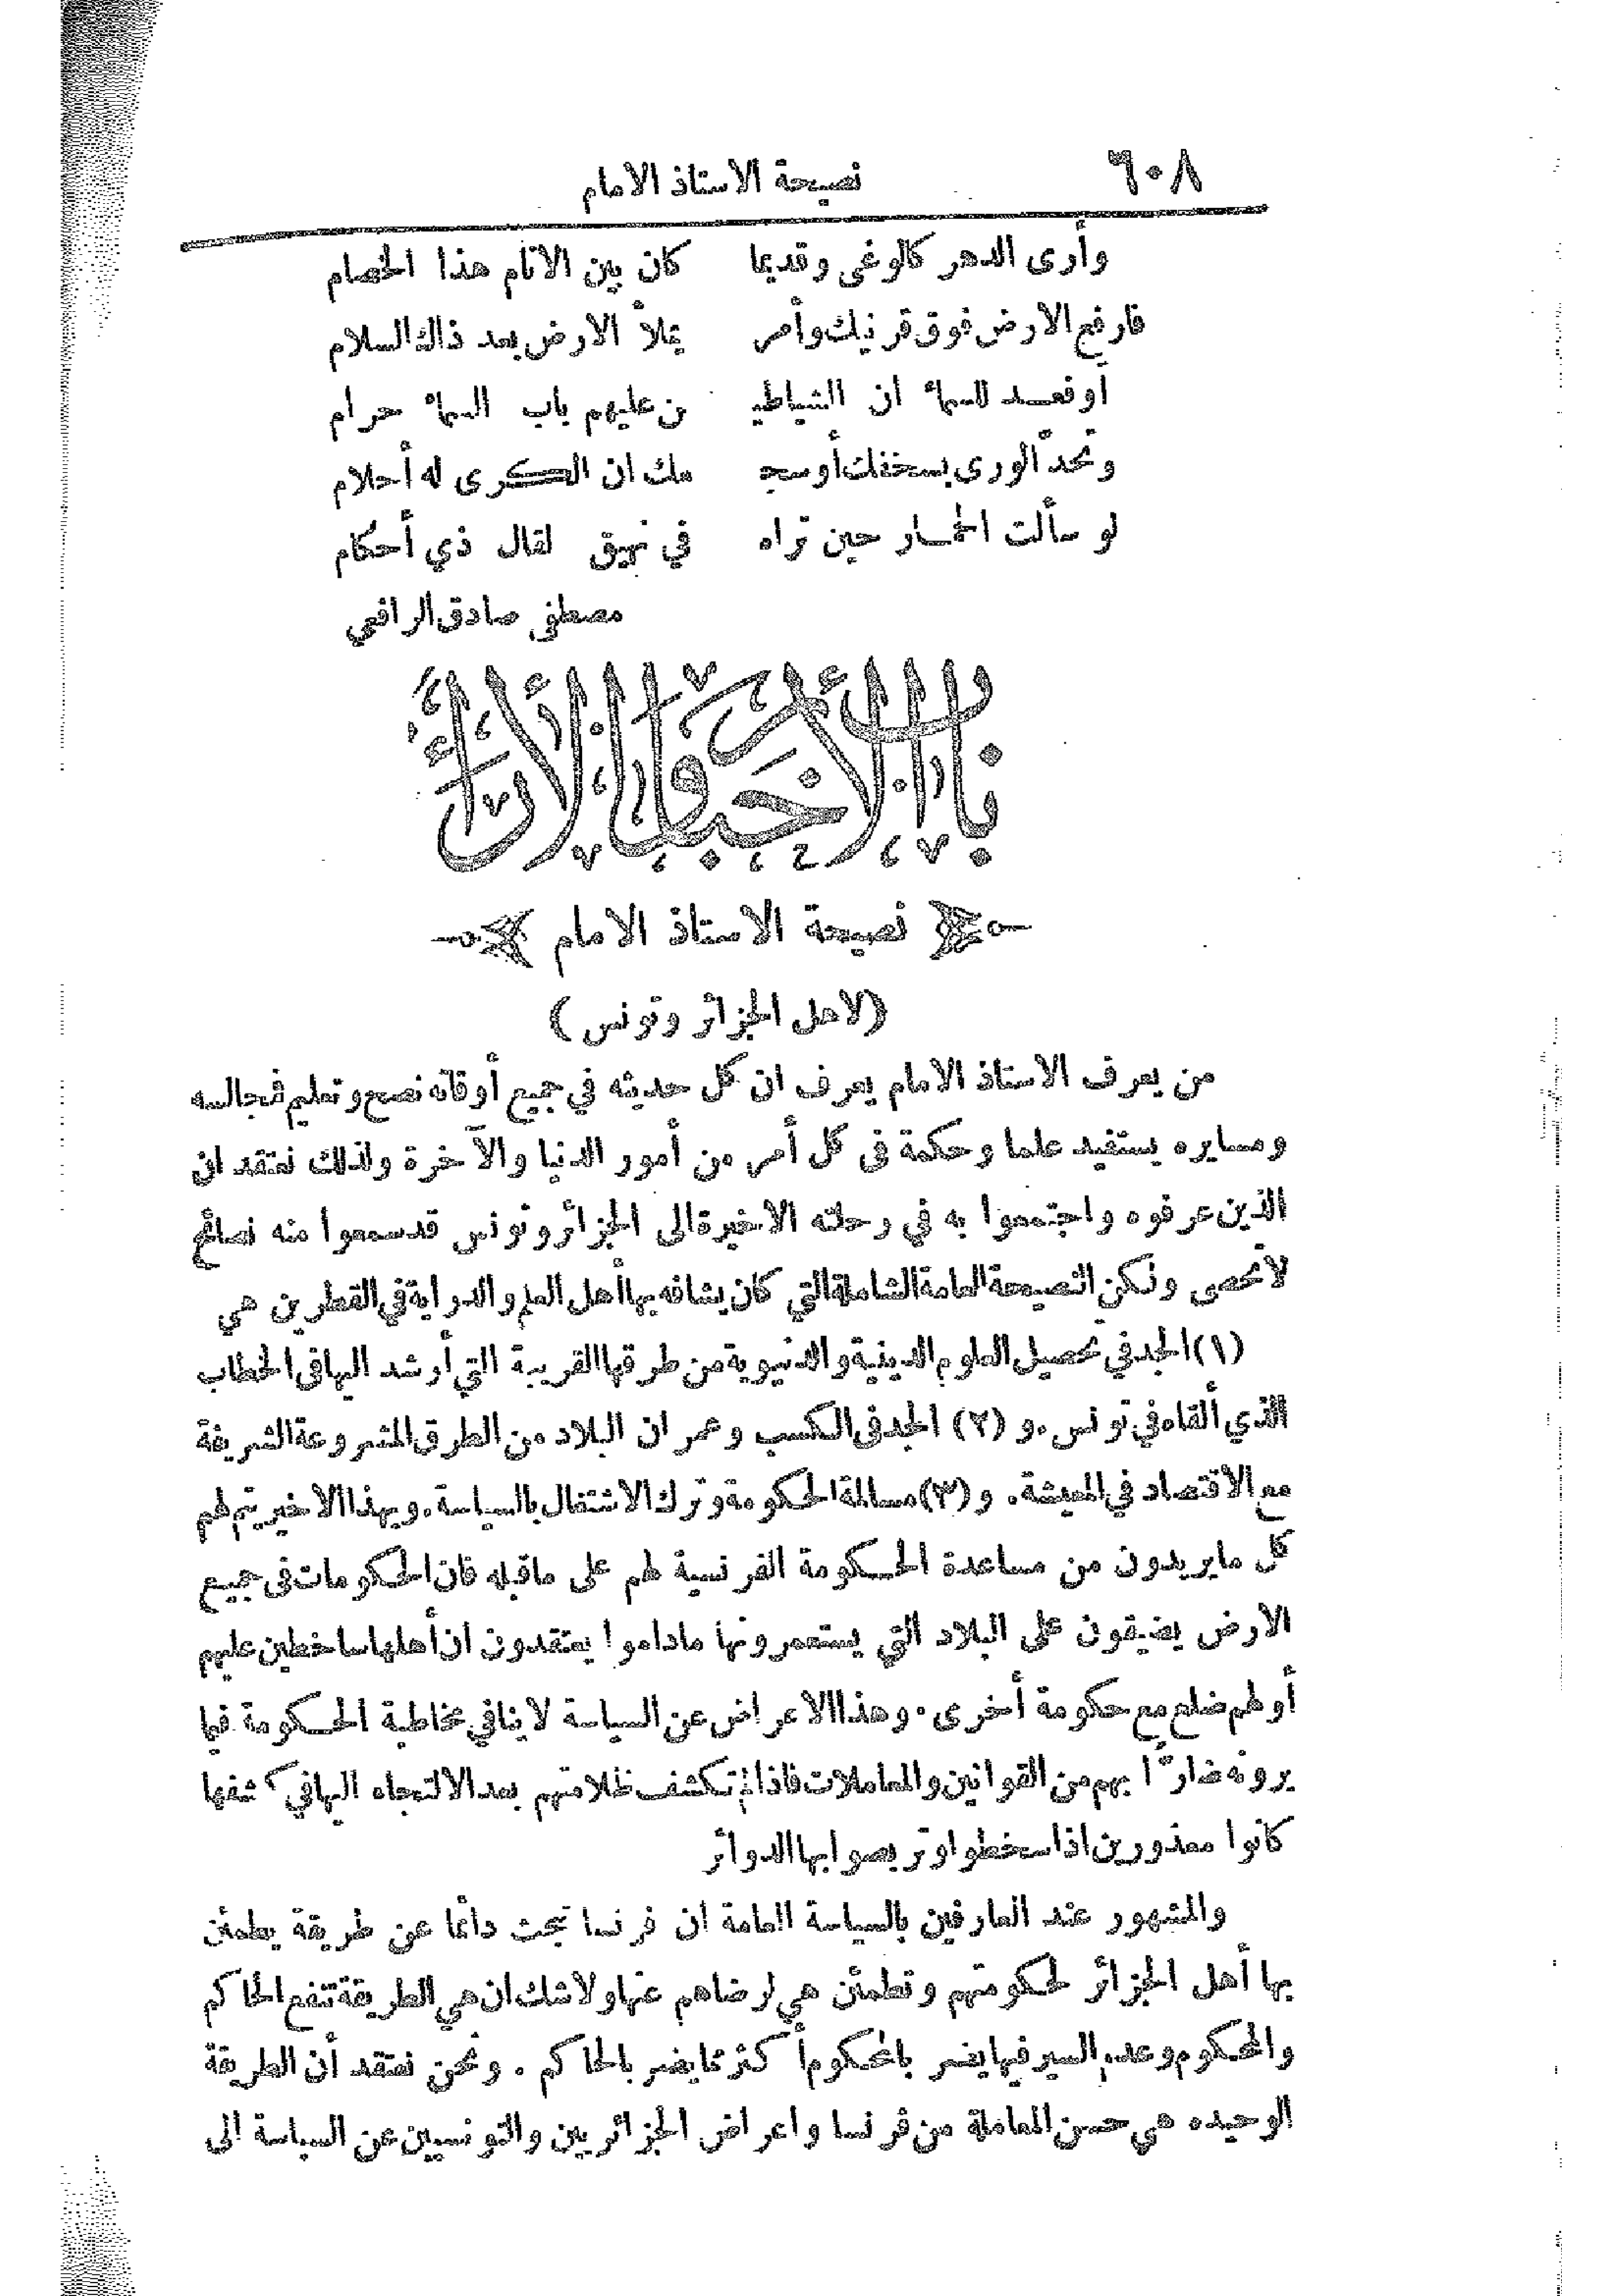 ٦٠٨ نصيحة الاستاذ الامام
وأرى الدهر كالوغى وقديما كان بين الانام هذا الخصام
فارفع الارض فوق قرنيك وأمر يملأ الارض بعد ذاك السلام
أو فعد للسماء ان الشياطيـ ـن عليهم باب السماء حرام
وتحدّ الورى بسخفك أو سجـ ـمك ان الكرى له أحلام
لو سألت الحمار حين تراه في نهيق لقال ذي أحكام
مصطفى صادق الرافعي
باب الأخبار والآراء
نصيحة الاستاذ الامام
(لاهل الجزائر وتونس)
من يعرف الاستاذ الامام يعرف ان كل حديثه في جميع أوقاته نصح وتعليم فمجالسه
ومسايره يستفيد علما وحكمة فى كل أمر من أمور الدنيا والآخرة ولذلك نعتقد ان
الذين عرفوه واجتمعوا به في رحلته الاخيرة الى الجزائر وتونس قد سمعوا منه نصائح
لا تحصى ولكن النصيحة العامة الشاملة التي كان يشافه بها أهل العلم والدراية في القطرين هي
(١) الجد في تحصيل العلوم الدينية والدنيوية من طرقها القريبة التي أرشد اليها في الخطاب
الذي ألقاه في تونس. و (٢) الجد فى الكسب وعمران البلاد من الطرق المشروعة الشريفة
مع الاقتصاد في المعيشة. و (٣) مسالمة الحكومة وترك الاشتغال بالسياسة. وبهذا الاخير يتم لهم
كل ما يريدون من مساعدة الحكومة الفرنسية لهم على ما قبله فان الحكومات فى جميع
الارض يضيقون على البلاد التي يستعمرونها ماداموا يعتقدون ان أهلها ساخطين عليهم
أو لهم ضلع مع حكومة أخرى. وهذا الاعراض عن السياسة لا ينافي مخاطبة الحكومة فيما
يرونه ضارًّا بهم من القوانين والمعاملات فاذا لم تكشف ظلامتهم بعد الالتجاء اليها في كشفها
كانوا معذورين اذا سخطوا وتربصوا بها الدوائر
والمشهور عند العارفين بالسياسة العامة ان فرنسا تبحث دائما عن طريقة يطمئن
بها أهل الجزائر لحكومتهم وتطمئن هي لرضاهم عنها ولا شك ان هي الطريقة تنفع الحاكم
والمحكوم وعدم السير فيها يضر بالمحكوم أكثر مما يضر بالحاكم. ونحن نعتقد أن الطريقة
الوحيده هي حسن المعاملة من فرنسا واعراض الجزائريين والتونسيين عن السياسة الى